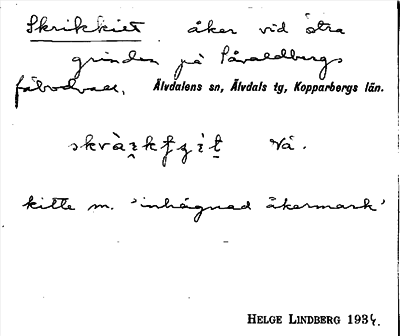 Skrikkiet åker vid östra
grinden på Påvaldbergs
fäbodvall, Älvdalens sn, Älvdals tg, Kopparbergs län.
Vå.
kitte m. 'inhägnad åkermark'
HELGE LINDBERG 1934.